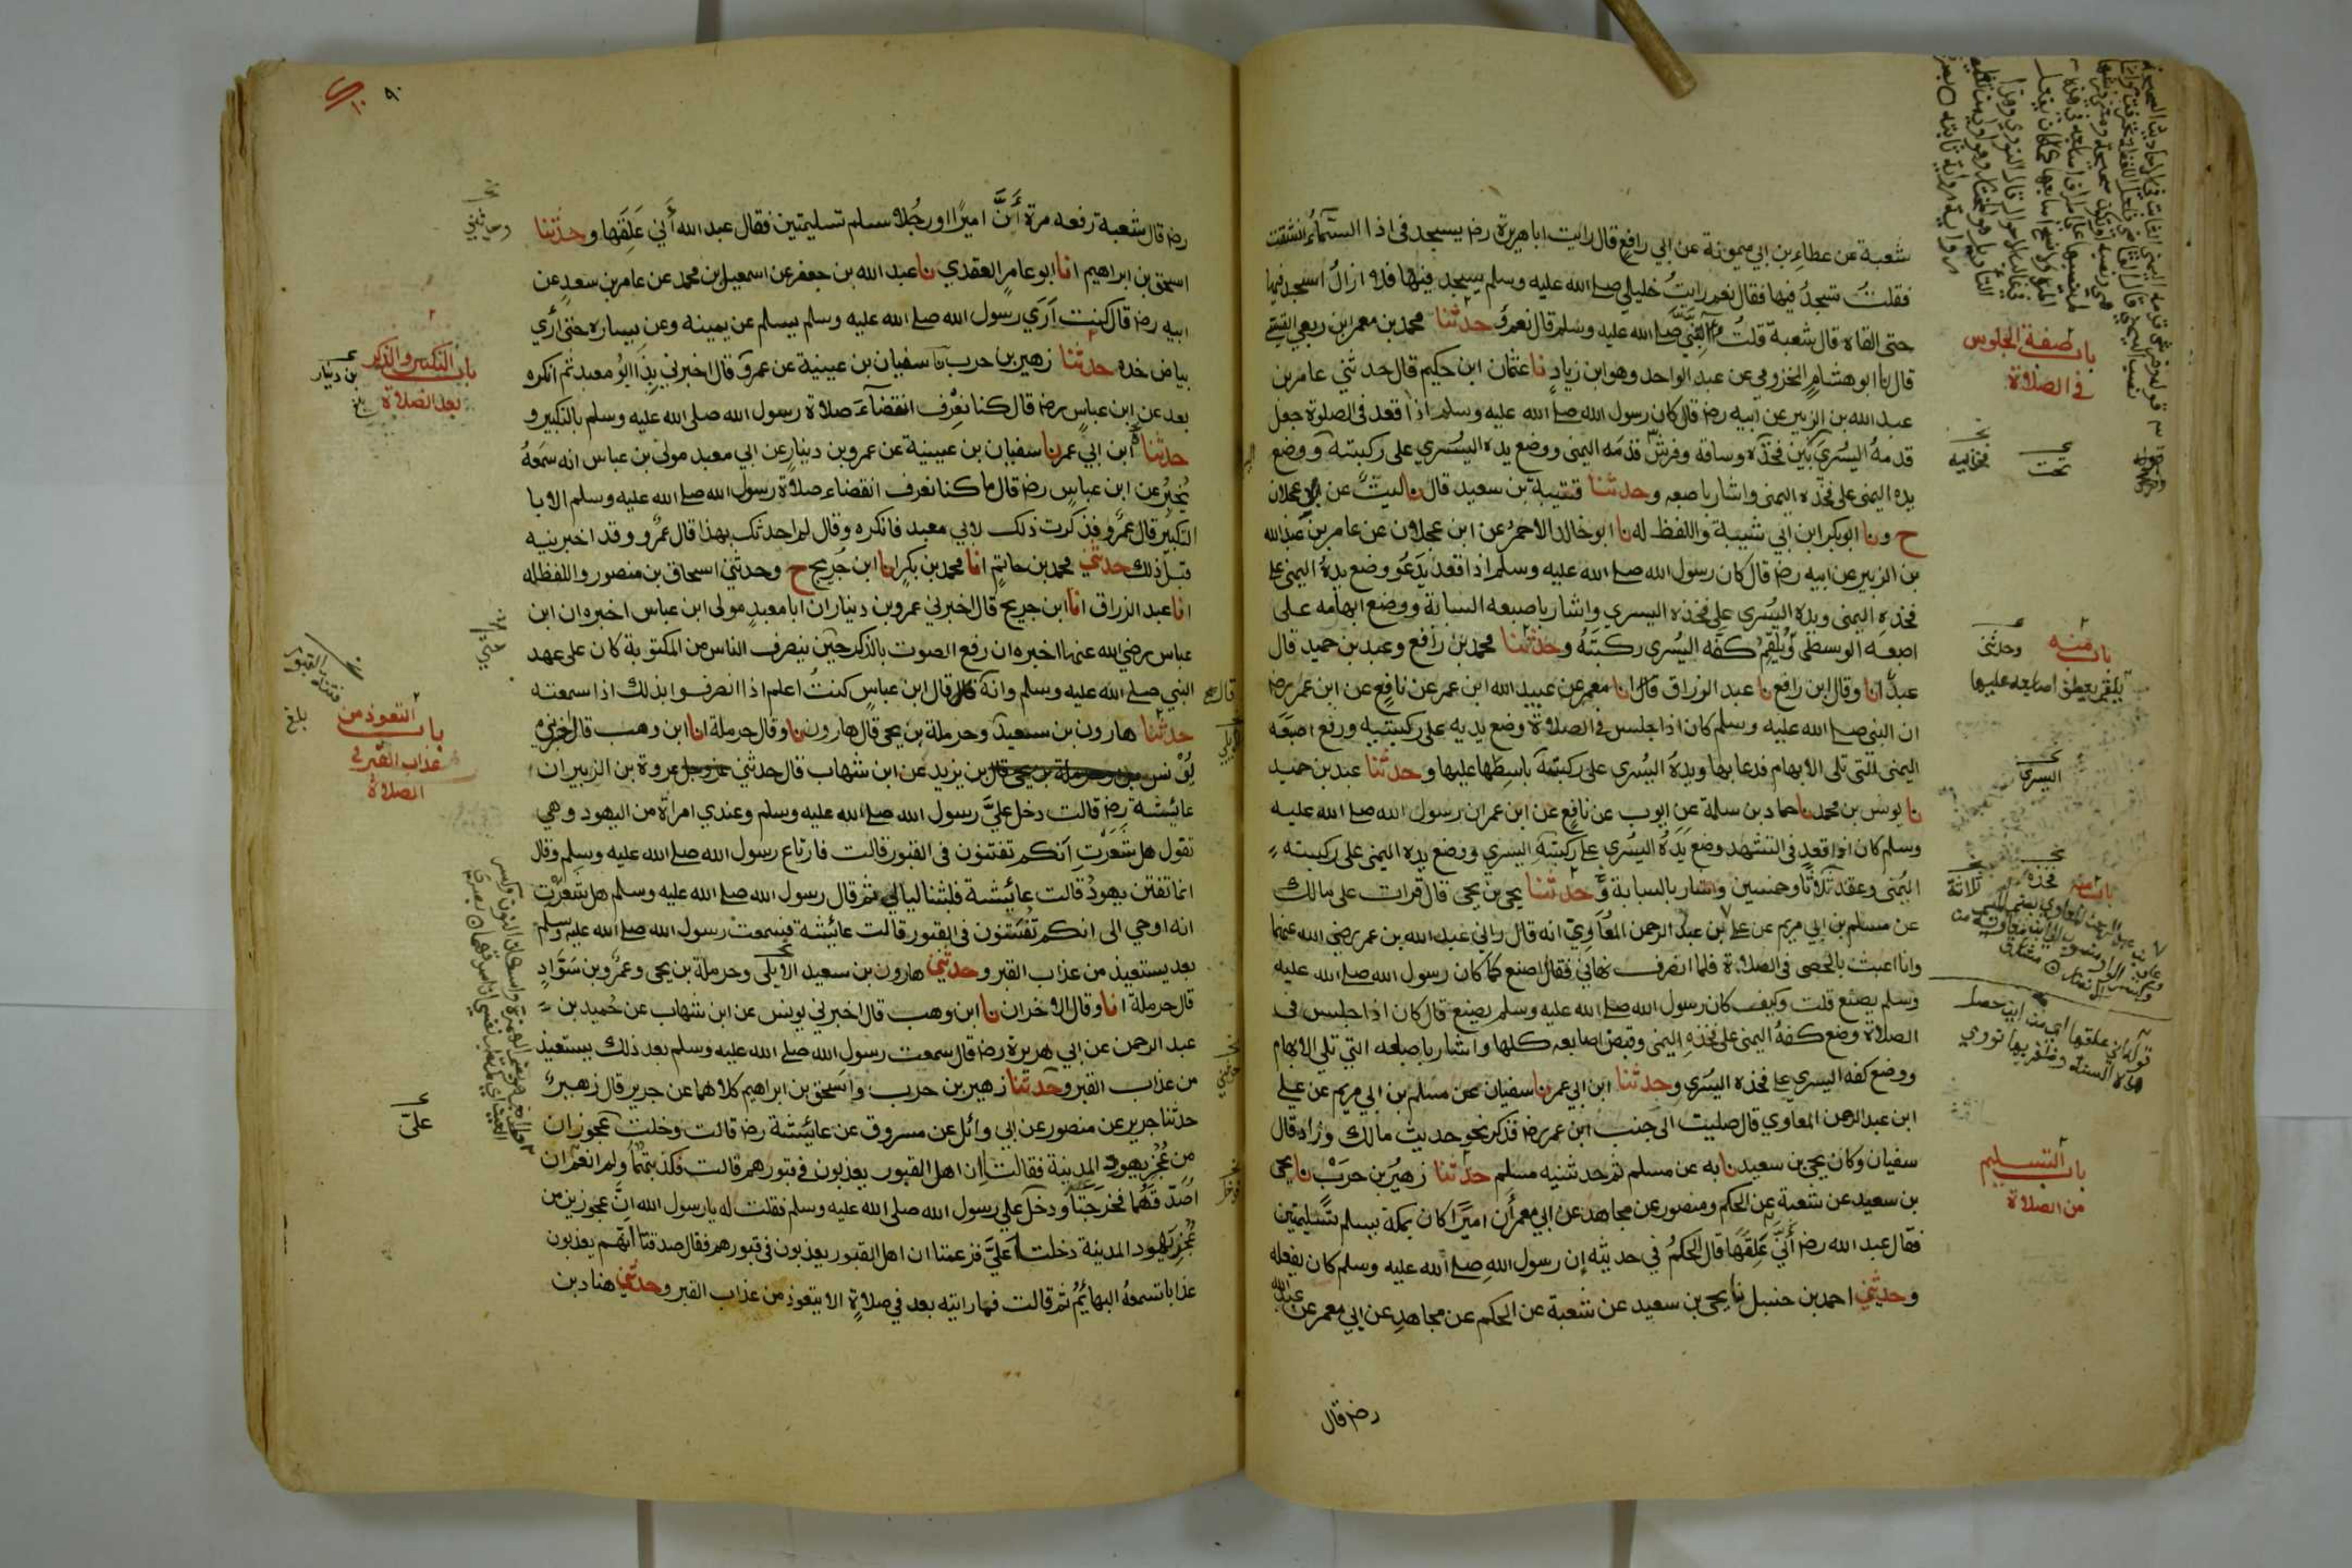 شعبة عن عطاء بن ابي ميمونة عن ابي رافع قال رايت ابا هريرة رضه يسجد في اذا السماء انشقت
فقلت تسجد فيها فقال نعم رايت خليلي صلے الله عليه وسلم يسجد فيها فلا ازال اسجد فيها
حتى القاه قال شعبة قلت النبي صلے الله عليه وسلم قال نعم وحدثنا محمد بن معمر ابن ربعي القيسي
قال نا ابو هشام المخزومي عن عبد الواحد وهو ابن زياد نا عثمان ابن حكيم قال حدثني عامر بن
عبد الله بن الزبير عن ابيه رضه قال كان رسول الله صلے الله عليه وسلم اذا قعد في الصلوة جعل
قدمه اليسرى بين فخذه وساقه وفرش قدمه اليمنى ووضع يده اليسري على ركبته ووضع
يده اليمنى على فخذه اليمنى واشار باصبعه وحدثنا قتيبة بن سعيد قال نا ليث عن ابن عجلان
ح ونا ابو بكر ابن ابي شيبة واللفظ له نا ابو خالد الاحمر عن ابن عجلان عن عامر بن عبد الله
بن الزبير عن ابيه رضه قال كان رسول الله صلے الله عليه وسلم اذا قعد يدعو وضع يده اليمنى على
فخذه اليمنى ويده اليسرى على فخذه اليسري واشار باصبعه السبابة ووضع ابهامه على
اصبعه الوسطى ويلقم كفه اليسرى ركبته وحدثنا محمد بن رافع وعبد بن حميد قال
عبد انا وقال ابن رافع نا عبد الرزاق قال انا معمر عن عبيد الله ابن عمر عن نافع عن ابن عمر رضه
ان النبي صلے الله عليه وسلم كان اذا جلس في الصلاة وضع يديه على ركبتيه ورفع اصبعه
اليمنى التي تلى الابهام فدعا بها ويده اليسري على ركبته باسطها عليها وحدثنا عبد بن حميد
نا يونس بن محمد نا حماد بن سلمة عن ايوب عن نافع عن ابن عمر ان رسول الله صلے الله عليه
وسلم كان اذا قعد في التشهد وضع يده اليسرى على ركبته اليسري ووضع يده اليمنى على ركبته
اليمنى وعقد ثلاثا وخمسين واشار بالسبابة وحدثنا يحيى بن يحيى قال قرات على مالك
عن مسلم بن ابي مريم عن على بن عبد الرحمن المعاوي انه قال راني عبد الله بن عمر رضي الله عنهما
وانا اعبث بالحصى في الصلاة فلما انصرف نهاني فقال اصنع كما كان رسول الله صلے الله عليه
وسلم يصنع قلت وكيف كان رسول الله صلے الله عليه وسلم يصنع قال كان اذا جلس في
الصلاة وضع كفه اليمنى على فخذه اليمنى وقبض اصابعه كلها واشار باصبعه التي تلى الابهام
ووضع كفه اليسري على فخذه اليسرى وحدثنا ابن ابي عمر نا سفيان عن مسلم بن ابي مريم عن علي
ابن عبد الرحمن المعاوي قال صليت الى جنب ابن عمر رضه فذكر نحو حديث مالك وزاد قال
سفيان وكان يحيى بن سعيد نا به عن مسلم ثم حدثنيه مسلم حدثنا زهير بن حرب نا يحيى
بن سعيد عن شعبة عن الحكم ومنصور عن مجاهد عن ابي معمر أن اميرا كان بمكة يسلم تسليمتين
فقال عبد الله رضه أنى علقها قال الحكم في حديثه إن رسول الله صلے الله عليه وسلم كان يفعله
وحدثني احمد بن حنبل نا يحيى بن سعيد عن شعبة عن الحكم عن مجاهد عن ابي معمر عن عبد الله
رضه قال
باب صفة الجلوس
في الصلاة
تحت
فخذيه
باب منه
وحدثني
يلقم يعطف اصابعه عليها
اليسرى
باب منه
ثلاثة
قوله أني علقها اي من اين حصل
هذه السنة وظفر بها نووي
باب التسليم
من الصلاة
٩٠
رضه قال شعبة رفعه مرة أن اميرا او رجلا سلم تسليمتين فقال عبد الله أني علقها وحدثنا
اسحق بن ابراهيم انا ابو عامر العقدي نا عبد الله بن جعفر عن اسمعيل بن محمد عن عامر بن سعد عن
ابيه رضه قال كنت آري رسول الله صلے الله عليه وسلم يسلم عن يمينه وعن يساره حتى أري
بياض خده حدثنا زهير بن حرب نا سفيان بن عيينة عن عمرو قال اخبرني بذا ابو معبد ثم انكره
بعد عن ابن عباس رضه قال كنا نعرف انقضاء صلاة رسول الله صلى الله عليه وسلم بالتكبير و
حدثنا ابن ابي عمر نا سفيان بن عيينة عن عمرو بن دينار عن ابي معبد مولى بن عباس انه سمعه
يخبر عن ابن عباس رضه قال ما كنا نعرف انقضاء صلاة رسول الله صلے الله عليه وسلم الا با
لتكبير قال عمرو فذكرت ذلك لابي معبد فانكره وقال لم احدثك بهذا قال عمرو وقد اخبرنيه
قبل ذلك حدثني محمد بن حاتم انا محمد بن بكر انا ابن جريج ح وحدثني اسحاق بن منصور واللفظ له
انا عبد الرزاق انا ابن جريج قال اخبرني عمرو بن دينار ان ابا معبد مولى ابن عباس اخبره ان ابن
عباس رضي الله عنهما اخبره ان رفع الصوت بالذكر حين ينصرف الناس من المكتوبة كان على عهد
النبي صلے الله عليه وسلم وانه قال قال ابن عباس كنت اعلم اذا انصرفوا بذلك اذا سمعته
حدثنا هارون بن سعيد وحرملة بن يحيى قال هارون نا وقال حرملة انا ابن وهب قال اخبرني
يونس بن يزيد عن ابن شهاب قال حدثني عروة بن الزبير ان
عايشة رضه قالت دخل علي رسول الله صلے الله عليه وسلم وعندي امراة من اليهود وهي
تقول هل شعرت انكم تفتنون في القبور قالت فارتاع رسول الله صلے الله عليه وسلم وقال
انما تفتن يهود قالت عايشة فلبثنا ليالي ثم قال رسول الله صلے الله عليه وسلم هل شعرت
انه اوحي الى انكم تفتنون في القبور قالت عايشة فسمعت رسول الله صلے الله عليه وسلم
بعد يستعيذ من عذاب القبر وحدثني هارون بن سعيد الايلي وحرملة بن يحيى وعمرو بن سواد
قال حرملة انا وقال الاخران نا ابن وهب قال اخبرني يونس عن ابن شهاب عن حميد بن
عبد الرحمن عن ابي هريرة رضه قال سمعت رسول الله صلے الله عليه وسلم بعد ذلك يستعيذ
من عذاب القبر وحدثنا زهير بن حرب واسحق بن ابراهيم كلاهما عن جرير قال زهير
حدثنا جرير عن منصور عن ابي وائل عن مسروق عن عايشة رضه قالت دخلت عجوزان
من عجز يهود المدينة فقالتا ان اهل القبور يعذبون في قبورهم قالت فكذبتهما ولم انعم ان
اصدقهما فخرجتا ودخل علي رسول الله صلى الله عليه وسلم فقلت له يا رسول الله ان عجوزين من
عجز يهود المدينة دخلتا علي فزعمتا ان اهل القبور يعذبون في قبورهم فقال صدقتا انهم يعذبون
عذابا تسمعه البهائم ثم قالت فما رايته بعد في صلاة الا يتعوذ من عذاب القبر وحدثني هناد بن
وحدثني
باب التكبير والذكر
بعد الصلاة
بن دينار
باب التعوذ من
عذاب القبر في
الصلاة
بلغ
عليّ